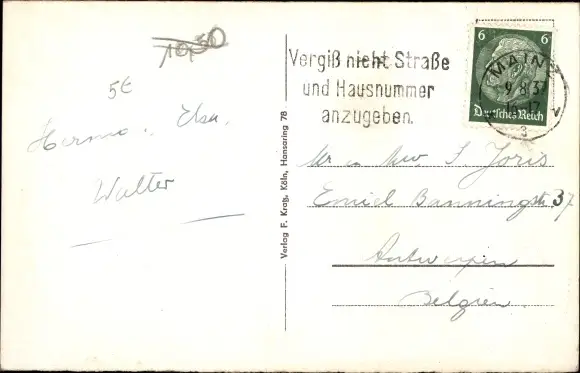 10,50
5€
Hermo., Elsa.
Walter
Verlag F. Kratz, Köln, Hansaring 78
Vergiß nicht Straße
und Hausnummer
anzugeben.
6 6
Deutsches Reich
MAINZ
9.8.37
16-17
3
Mr en Mw. J. Joris
Emiel Banningstr 37
Antwerpen
Belgien.